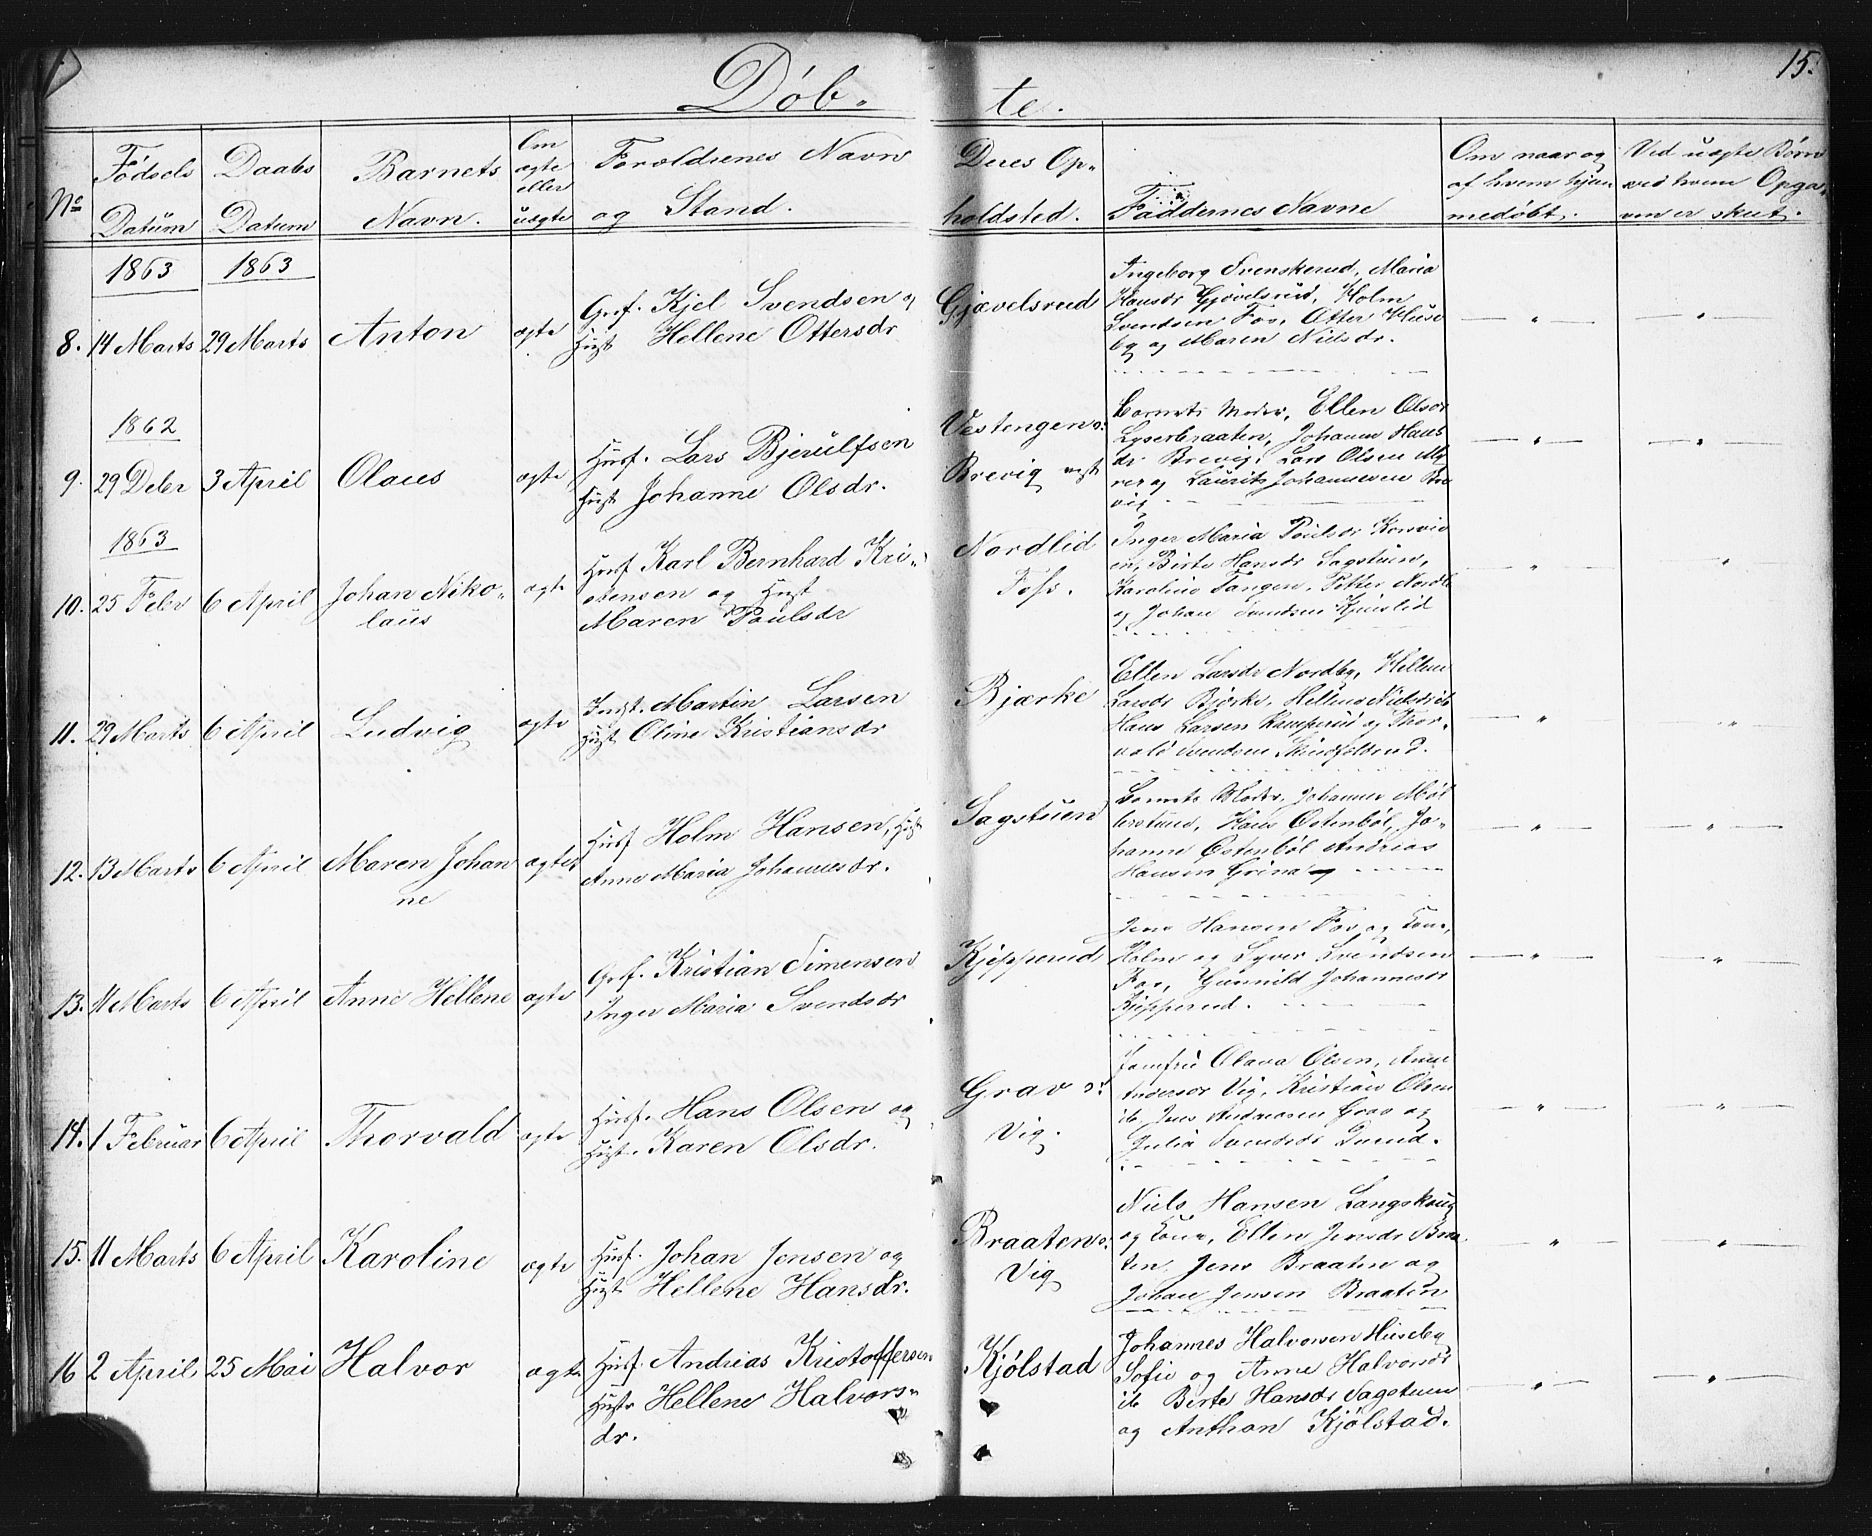 15.
Døb-
te.
No
Fødsels
Datum
Daabs
Datum
Barnets
Navn.
Om
ægte
eller
uægte
Forældrenes Navn
og Stand.
Deres Op-
holdsted.
Faddernes Navne
Om naar og
af hvem hjem
medøbt.
Ved uægte Børn
ved hvem Opga-
ven er skeet.
1863
1863
8. 14 Marts 29 Marts Anton ægte
Grf. Kjel Svendsen og
Hust Hellene Ottersdr
Gjævelsrud
Ingeborg Svenskerud, Maria
Hansdr Gjævelsrud, Holm
Svendsen Fos, Otter Huse
by og Maren Nielsdr.
1862
9. 29 Debr 3 April Olaus ægte
Husf. Lars Bjerulfsen
Hust Johanne Olsdr.
Vestengen
Brevig vest
Barnets Moder, Ellen Olsdr
Lyserbraaten, Johanne Hans
dr Brevig, Lars Olsen
og Laurits Johannesen Bre
vig
1863
10. 25 Febr 6 April Johan Niko-
laus
ægte
Husf Karl Bernhard Kri-
stensen og Hust
Maren Poulsdr
Nordlid
Foss.
Inger Maria Poulsdr
Birte Hansdr Sagstuen,
Karoline Tangen, Nordli
og Johan Svendsen
11. 29 Marts 6 April Ludvig ægte
Indst. Martin Larsen
Hust Oline Kristiansdr
Bjærke
Ellen Larsdr Nordby, Hellene
Larsdr Bjerke, Helene Nielsdr ib
Hans Larsen og Thor-
vald Svendsen
12. 13 Marts 6 April Maren Johan
ne
ægte
Husf Holm Hansen, Hust
Anne Maria Johannesdr.
Sagstuen
Barnets Moder, Johannes Møl
lerstuen, Hans Østenbøl, Jo-
hanne Østenbøl Andreas
Hansen Grina og
13. 11 Marts 6 April Anne Hellene ægte
Grf. Kristian Simensen
Inger Maria Svendsdr
Kjepperud
Jens Hansen Fos og Kone,
Holm og Lyver Svendsen
Fos, Gunnild Johannesdr
Kjepperud.
14. 1 Februar 6 April Thorvald ægte
Husf. Hans Olsen og
Hust. Karen Olsdr.
Grav
Vig.
Jomfru Olava Olsen, Anne
Andersdr Vig, Kristian Olsen
ib Jens Andresen Grav og
Julia Svendsdr
15. 11 Marts 6 April Karoline ægte
Husf. Johan Jensen og
Hust Hellene Hansdr.
Braaten
Vig
Niels Hansen Langskoug
og Kone, Ellen Jensdr Braa
ten. Jens Braaten og
Johan Jensen Braaten
16 2 April 25 Mai Halvor ægte
Husf. Andreas Kristoffersen
Hustr Hellene Halvors-
dr.
Kjølstad
Johannes Halvorsen Huseby
Sofie og Anne Halvorsdr
ib Birte Hansdr Sagstuen
og Anthon Kjølstad.